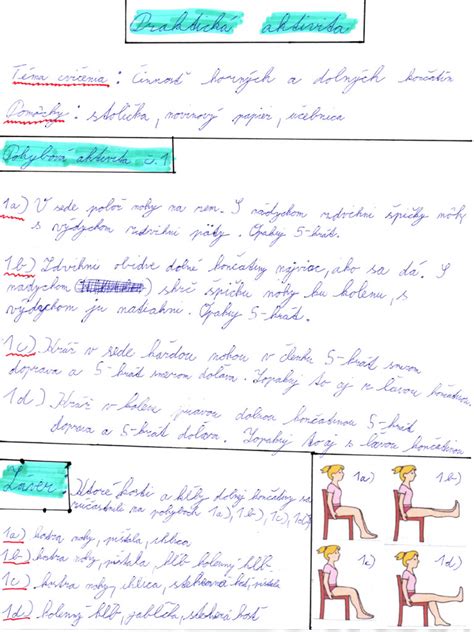 Praktická aktivita
Téma cvičenia: Činnosť horných a dolných končatín
Pomôcky: stolička, novinový papier, učebnica
Pohybová aktivita č.1
1a) V sede polož nohy na zem. S nádychom nadvihni špičky nôh,
s výdychom nadvihni päty. Opakuj 5-krát.
1b) Zdvihni obidve dolné končatiny najviac, ako sa dá. S
nádychom skrč špičku nohy ku kolenu, s
výdychom ju natiahni. Opakuj 5-krát.
1c) Krúž v sede každou nohou v členku 5-krát smerom
doprava a 5-krát smerom doľava. Zopakuj to aj s ľavou končatinou.
1d) Krúž v kolene pravou dolnou končatinou 5-krát
doprava a 5-krát doľava. Zopakuj to aj s ľavou končatinou
Záver: Ktoré kosti a kĺby dolnej končatiny sa
zúčastnili na pohyboch 1a), 1b), 1c), 1d)
1a) kostra nohy, píšťala, ihlica
1b) kostra nohy, píšťala, kĺb kolenný kĺb.
1c) kostra nohy, ihlica, stehenná kosť, píšťala
1d) kolenný kĺb, jabĺčko, stehenná kosť
1a) 1b)
1c) 1d)